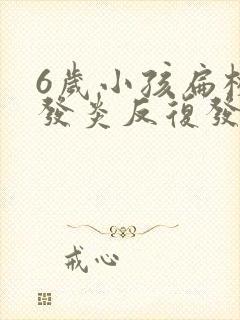 6歲小孩扁桃
發炎反復發
戒心